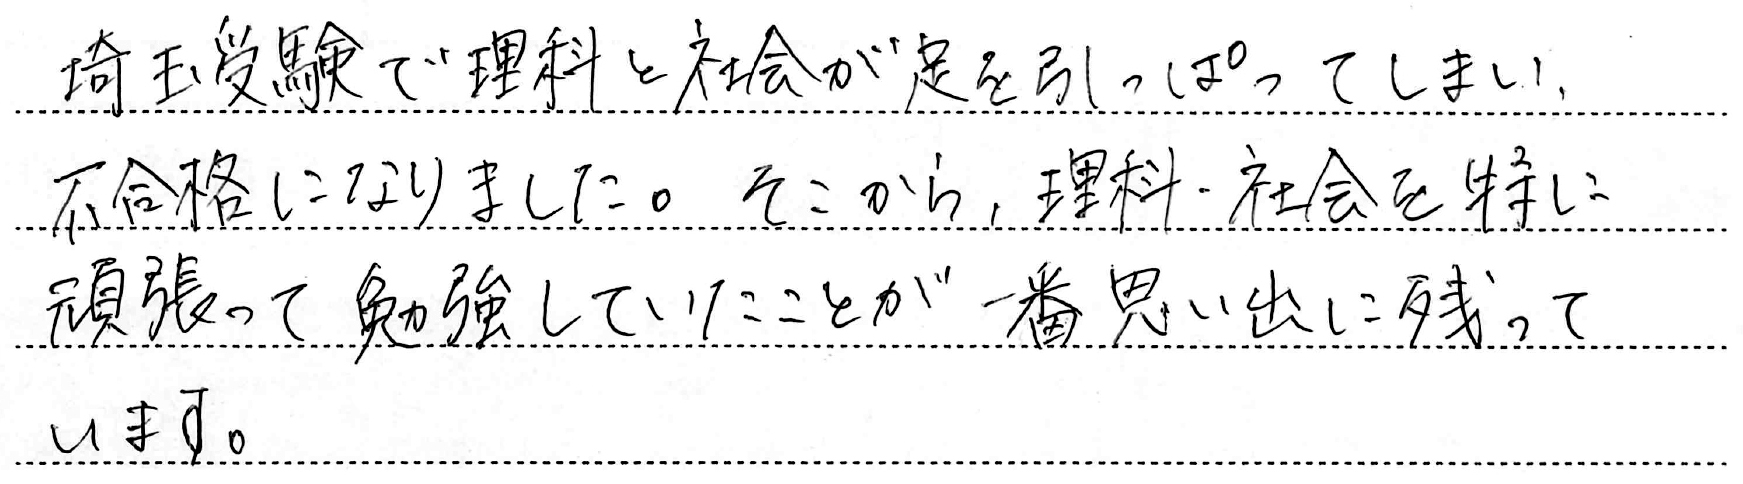 埼玉受験で理科と社会が足を引っぱってしまい、
不合格になりました。そこから、理科・社会を特に
頑張って勉強していたことが一番思い出に残って
います。